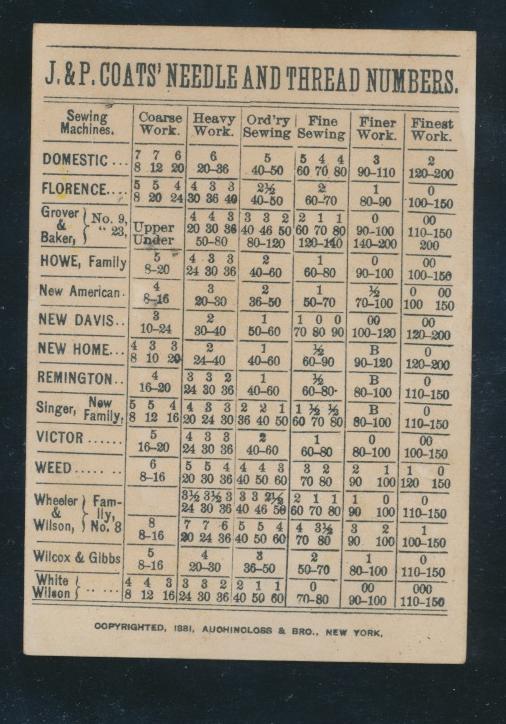 J. & P. COATS' NEEDLE AND THREAD NUMBERS.
Sewing Coarse Heavy Ord'ry Fine Finer Finest
Machines. Work. Work. Sewing Sewing Work. Work.
DOMESTIC... 7 7 6 6 5 5 4 4 3 2
8 12 20 20-36 40-50 60 70 80 90-110 120-200
FLORENCE.... 5 5 4 4 3 3 2½ 2 1 0
8 20 24 30 36 40 40-50 60-70 80-90 100-150
Grover & Baker, { No. 9, 4 4 3 3 3 2 2 1 1 0 00
" 23, Upper 20 30 36 40 46 50 60 70 80 90-100 110-150
Under 50-80 80-120 120-140 140-200 200
HOWE, Family 5 4 3 3 2 1 0 00
8-20 24 30 36 40-60 60-80 90-100 100-150
New American. 4 3 2 1 ½ 0 00
8-16 20-30 36-50 50-70 70-100 100 150
NEW DAVIS.. 3 2 1 1 0 0 00 00
10-24 30-40 50-60 70 80 90 100-120 120-200
NEW HOME... 4 3 3 2 1 ½ B 0
8 10 20 24-40 40-60 60-90 90-120 120-200
REMINGTON.. 4 3 3 2 1 ½ B 0
16-20 24 30 36 40-60 60-80 80-100 110-150
Singer, { New Family, 5 5 4 4 3 3 2 2 1 1 ½ ½ B 0
8 12 16 20 24 30 36 40 50 60 70 80 80-100 110-150
VICTOR ...... 5 4 3 3 2 1 0 00
16-20 24 30 36 40-60 60-80 80-100 100-150
WEED ..... 6 5 5 4 4 4 3 3 2 2 1 1 0
8-16 20 30 36 40 50 60 70 80 90 100 120 150
Wheeler & Wilson, { Fam- 3½ 3½ 3 3 3 2½ 2 1 1 1 0 0
ily, 24 30 36 40 46 50 60 70 80 90 100 110-150
No. 8 8 7 7 6 5 5 4 4 3½ 3 2 1
8-16 20 24 36 40 50 60 70 80 90 100 100-150
Wilcox & Gibbs 5 4 3 2 1 0
8-16 20-30 36-50 50-70 80-100 110-150
White 4 4 3 3 3 2 2 1 1 0 00 000
Wilson } ..... 8 12 16 24 30 36 40 50 60 70-80 90-100 110-150
COPYRIGHTED, 1881, AUCHINCLOSS & BRO., NEW YORK.